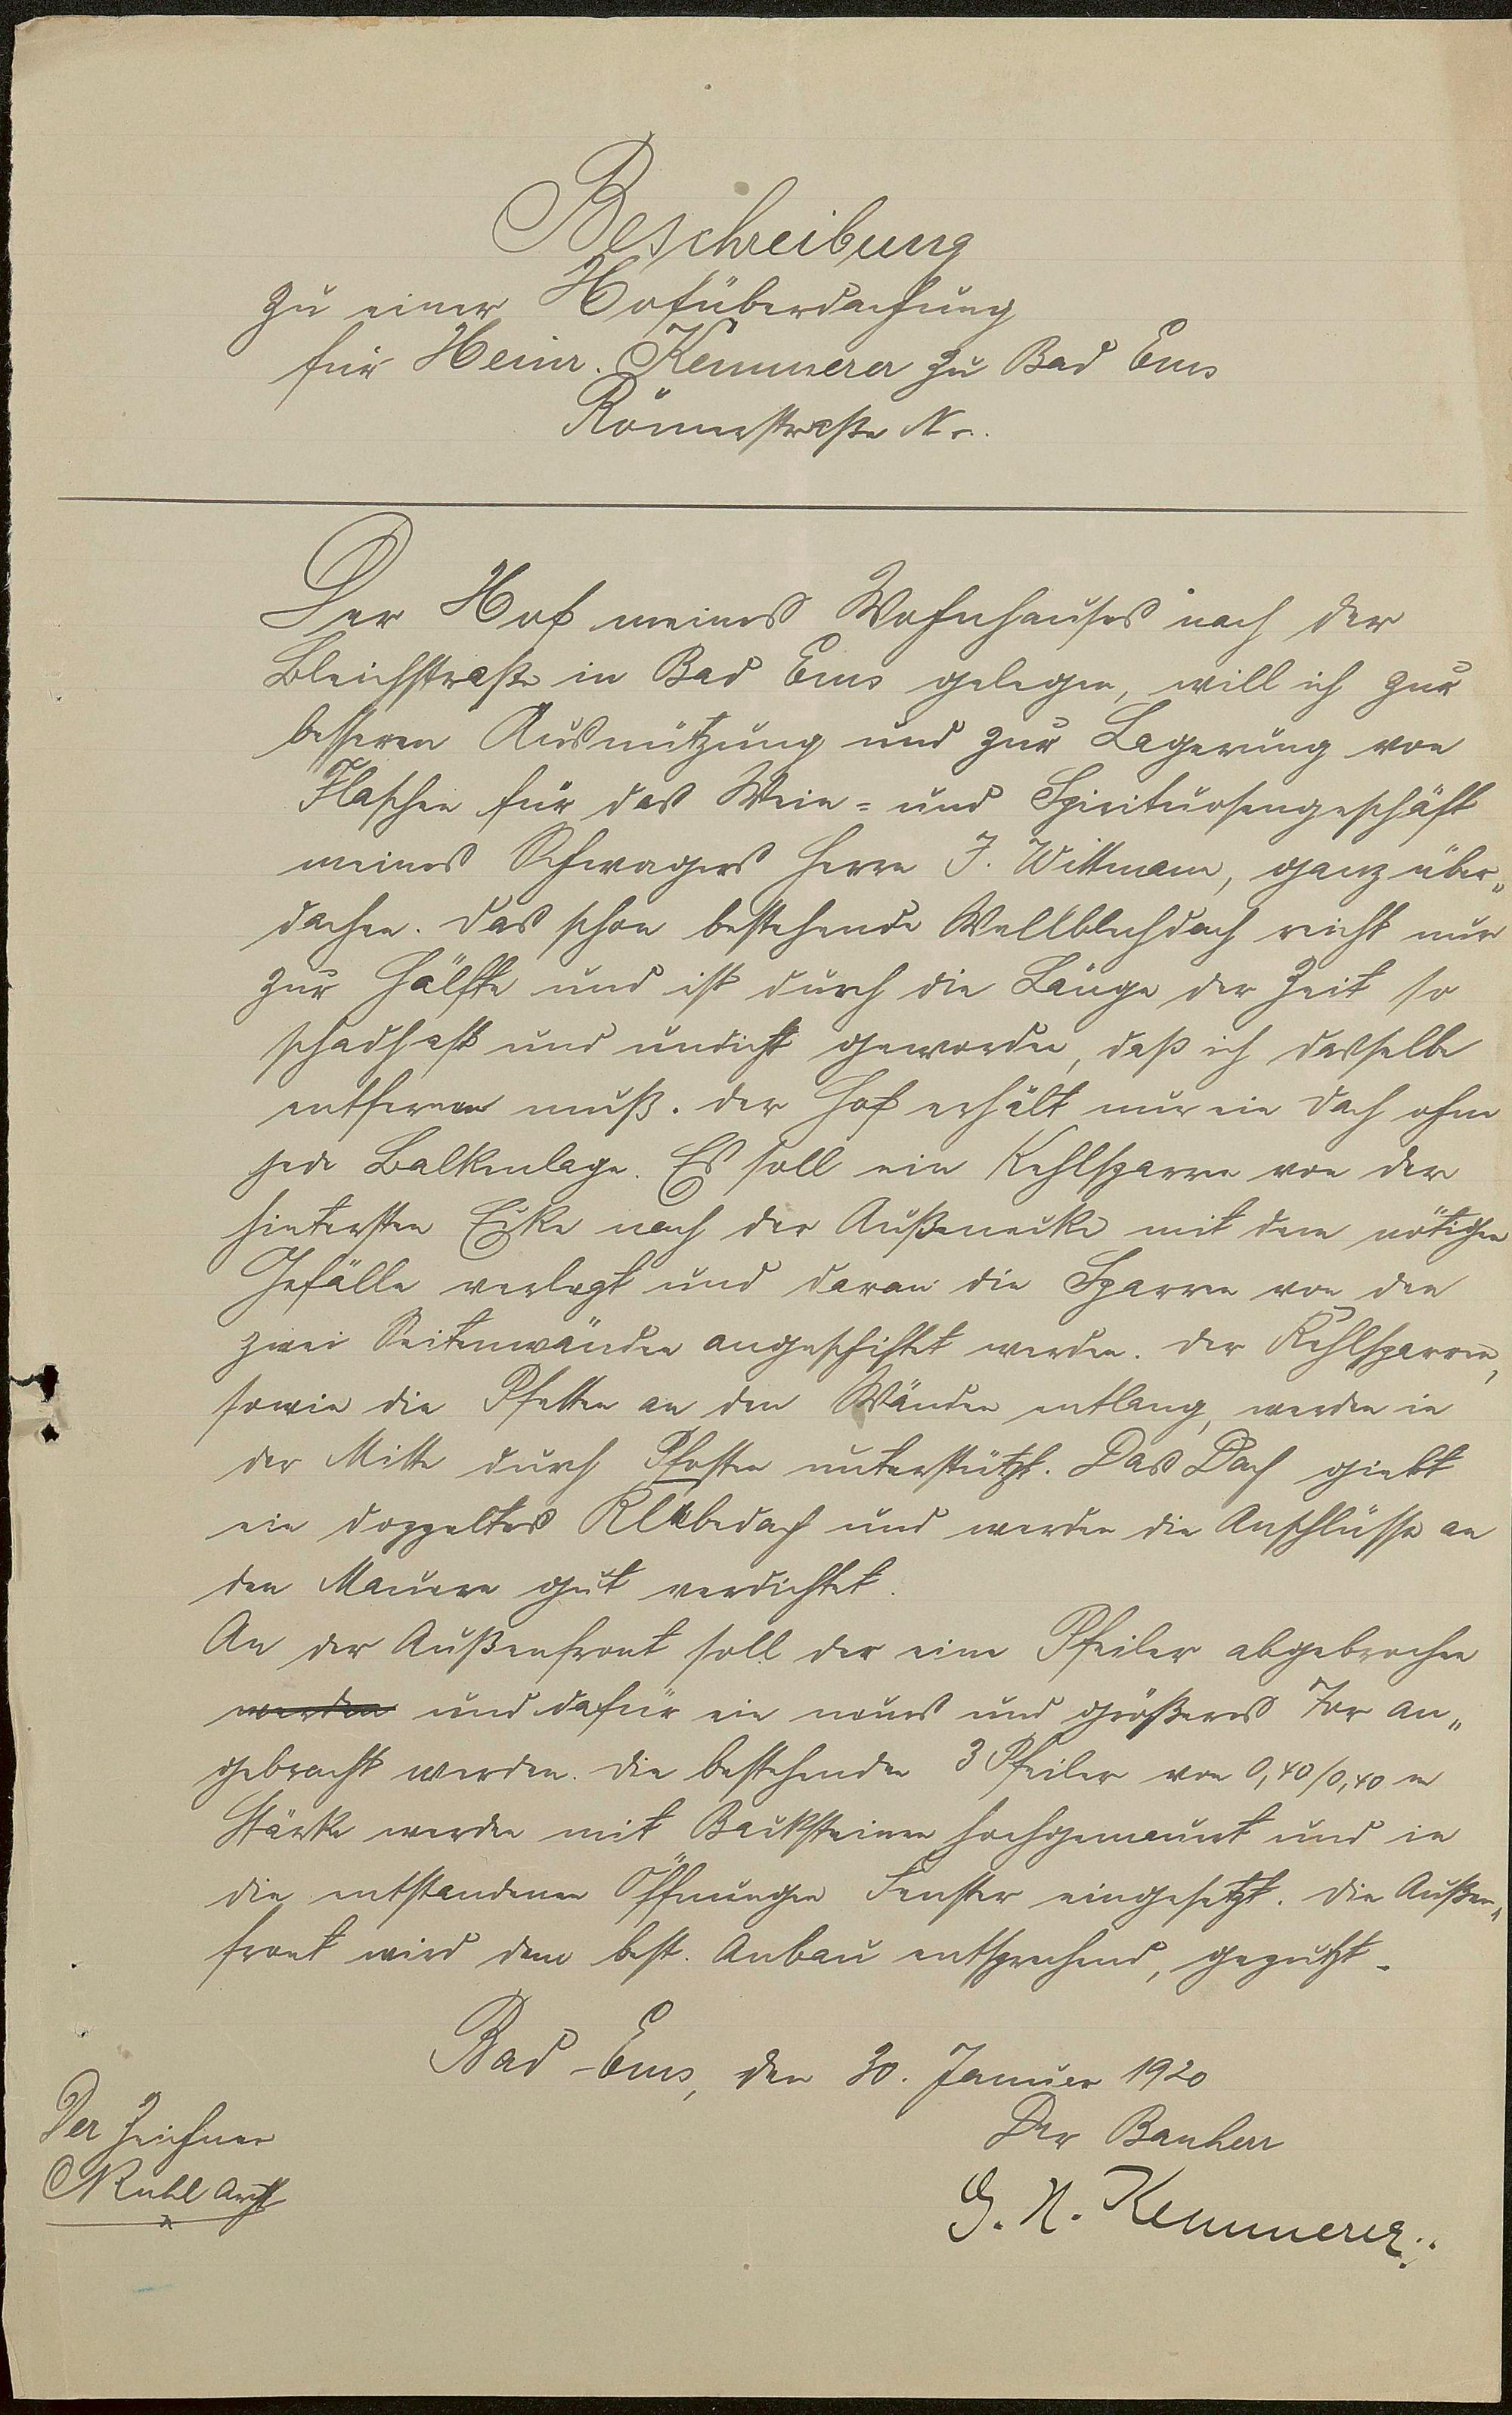 Beschreibung
zu einer Hofüberdachung
für Heinr. Kemmerer zu Bad Ems
Römerstraße Nr.
Der Hof meines Wohnhauses nach der
Bleichstraße in Bad Ems gelegen, will ich zur
besseren Ausnützung und zur Lagerung von
Flaschen für das Wein- und Spirituosengeschäft
meines Schwagers Herrn J. Wittmann, ganz über„
dachen. Das schon bestehende Wellblechdach reicht nur
zur Hälfte und ist durch die Länge der Zeit so
schadhaft und undicht geworden, daß ich dasselbe
entfernen muß. Der Hof erhält nur ein Dach ohne
jede Balkenlage. Es soll ein Kehlsparren von der
hintersten Ecke nach der Außenecke mit dem nötigen
Gefälle verlegt und daran die Sparren von den
zwei Seitenwänden angeschiftet werden. Der Kehlsparren,
sowie die Pfetten an den Wänden entlang, werden in
der Mitte durch Pfosten unterstützt. Das Dach giebt
ein doppeltes Klebedach und werden die Anschlüsse an
den Mauern gut verdichtet.
An der Außenfront soll der eine Pfeiler abgebrochen
werden und dafür ein neues und größeres Tor an„
gebracht werden. Die bestehenden 3 Pfeiler von 0,40/0,40 m
Stärke werden mit Backsteinen hochgemauert und in
die entstandenen Öffnungen Fenster eingesetzt. Die Außen„
front wird dem best. Anbau entsprechend, geputzt.
Bad-Ems, den 30. Januar 1920
Der Zeichner
Der Bauherr
Ruhl Arch
G. H. Kemmerer